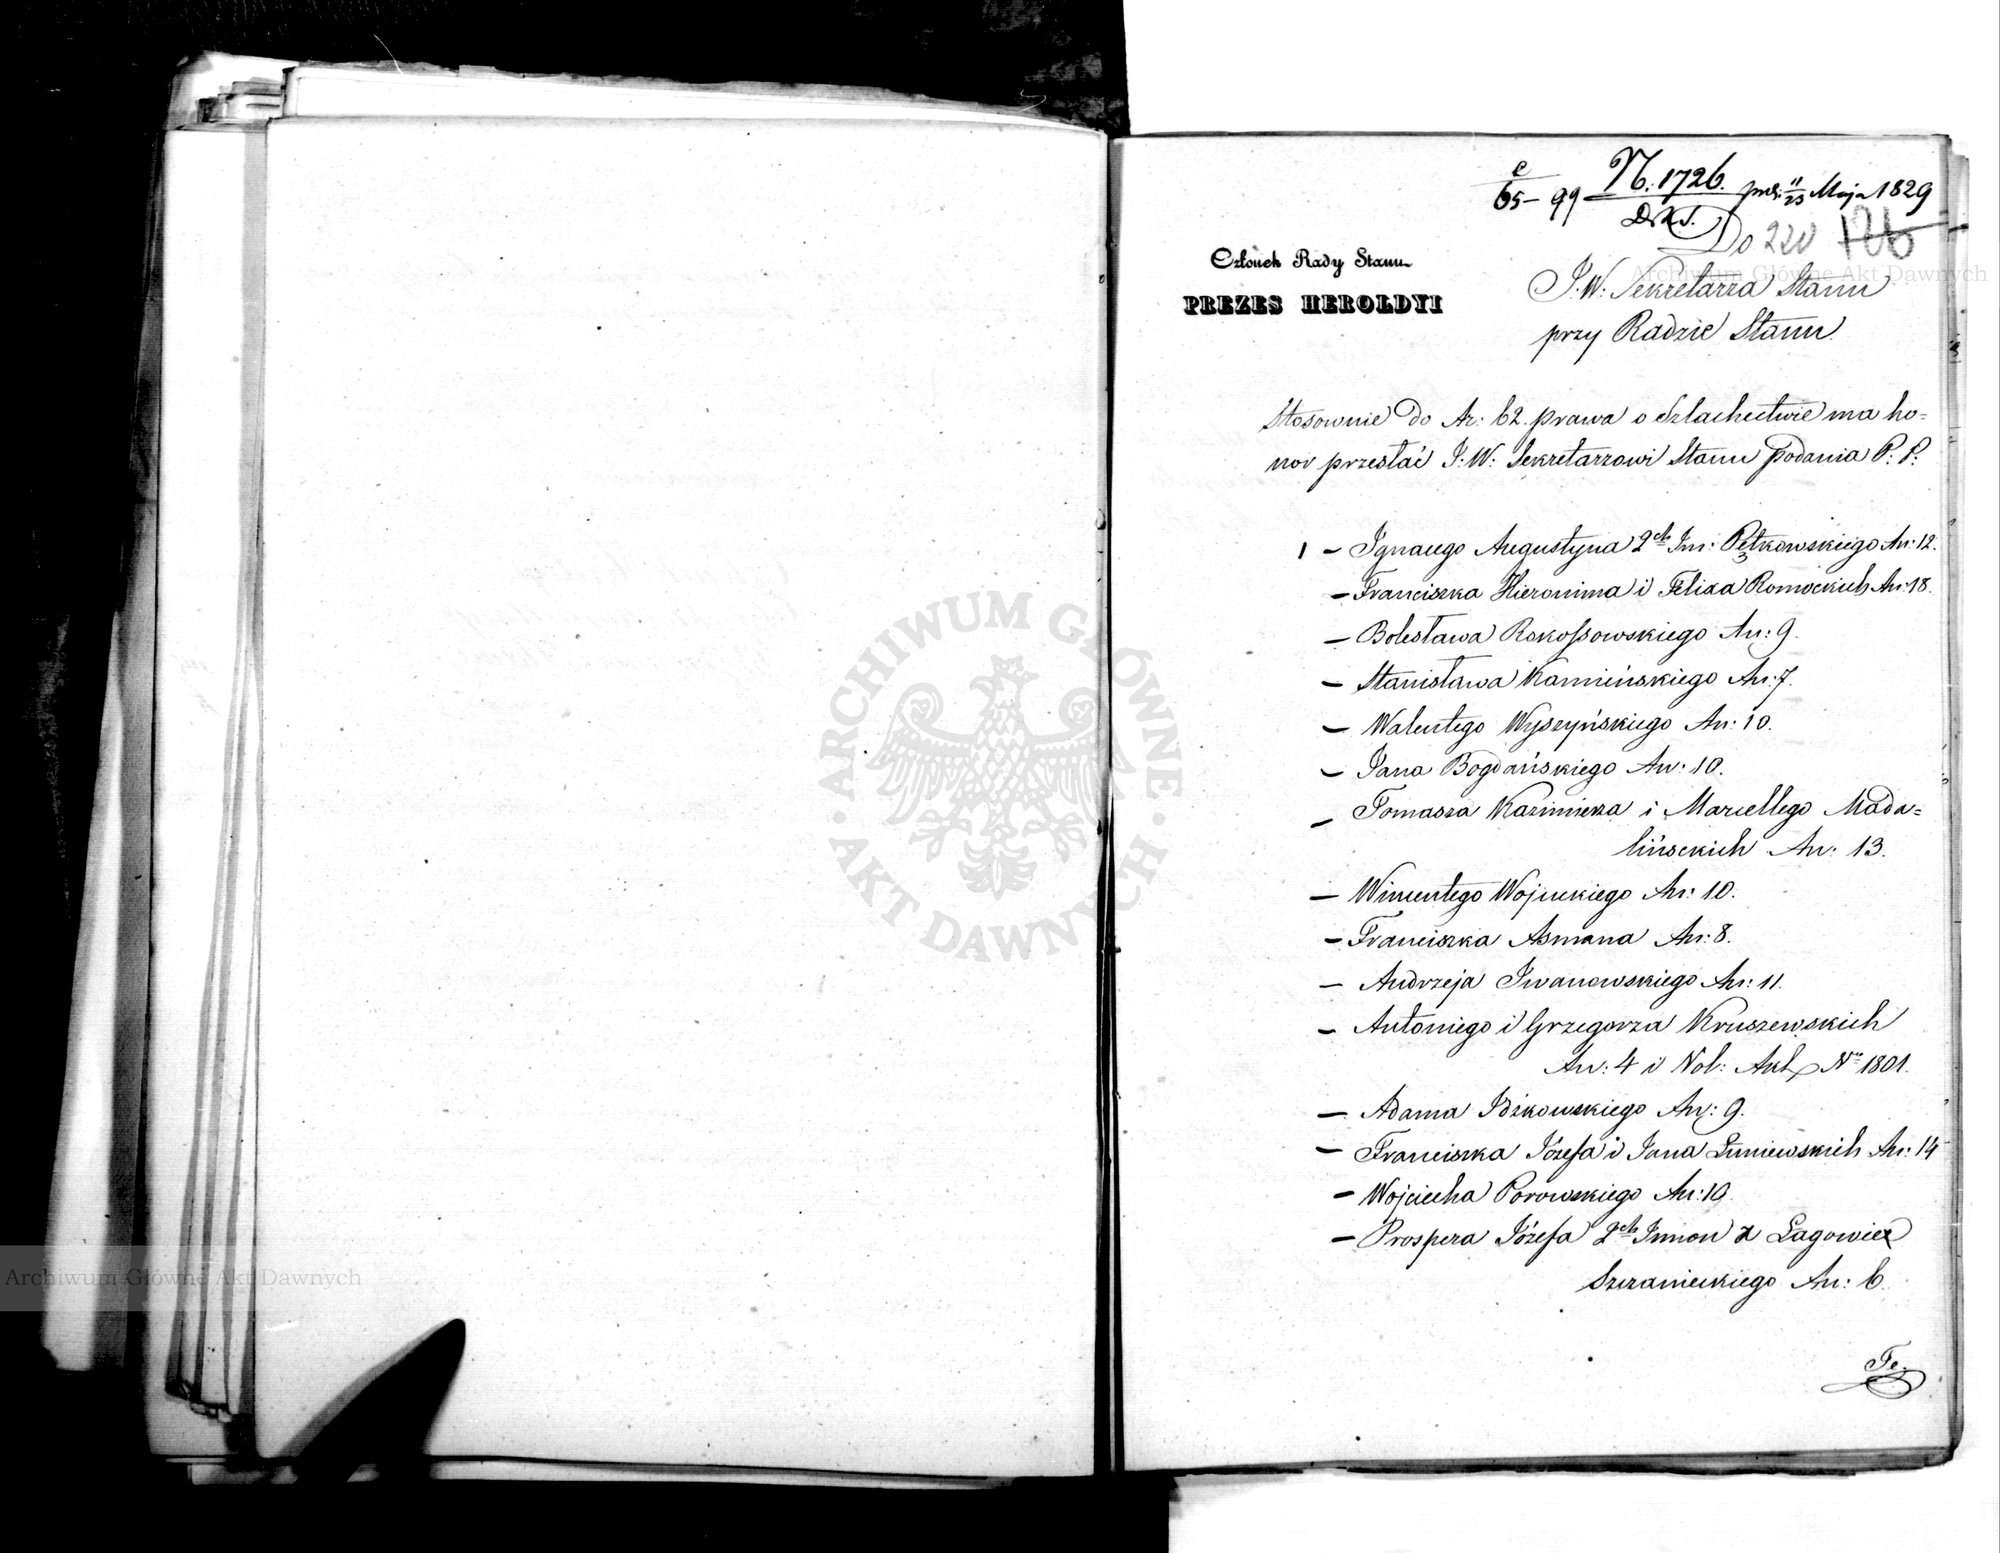 N. 1726. 11/23 Maja 1829
65 – 99
Do 220 126
Członek Rady Stanu
PREZES HEROLDYI
J.W: Sekretarza Stanu
przy Radzie Stanu
Stosownie do Ar: 62 prawa o Szlachectwie ma ho=
nor przesłać J.W: Sekretarzowi Stanu podania P: P:
1 – Ignacego Augustyna 2ch Im: Pętkowskiego An: 12.
– Franciszka Hieronima i Felixa Romockich An: 18.
– Bolesława Rokossowskiego An: 9.
– Stanisława Kamińskiego An: 7.
– Walentego Wyszyńskiego An: 10.
– Jana Bogdańskiego An: 10.
– Tomasza Kazimierza i Marcellego Mada=
lińsckich An: 13.
– Wincentego Wojcickiego An: 10.
– Franciszka Asmana An: 8.
– Andrzeja Iwanowskiego An: 11.
– Antoniego i Grzegorza Kruszewskich
An: 4 i Vol: Akt No 1801.
– Adama Idźkowskiego An: 9.
– Franciszka Józefa i Jana Łuniewskich An: 14
– Wojciecha Porowskiego An: 10.
– Prospera Józefa 2ch Imion z Łagowicz
Szczanieckiego An: 6.
Archiwum Główne Akt Dawnych
ARCHIWUM GŁÓWNE AKT DAWNYCH
Archiwum Główne Akt Dawnych